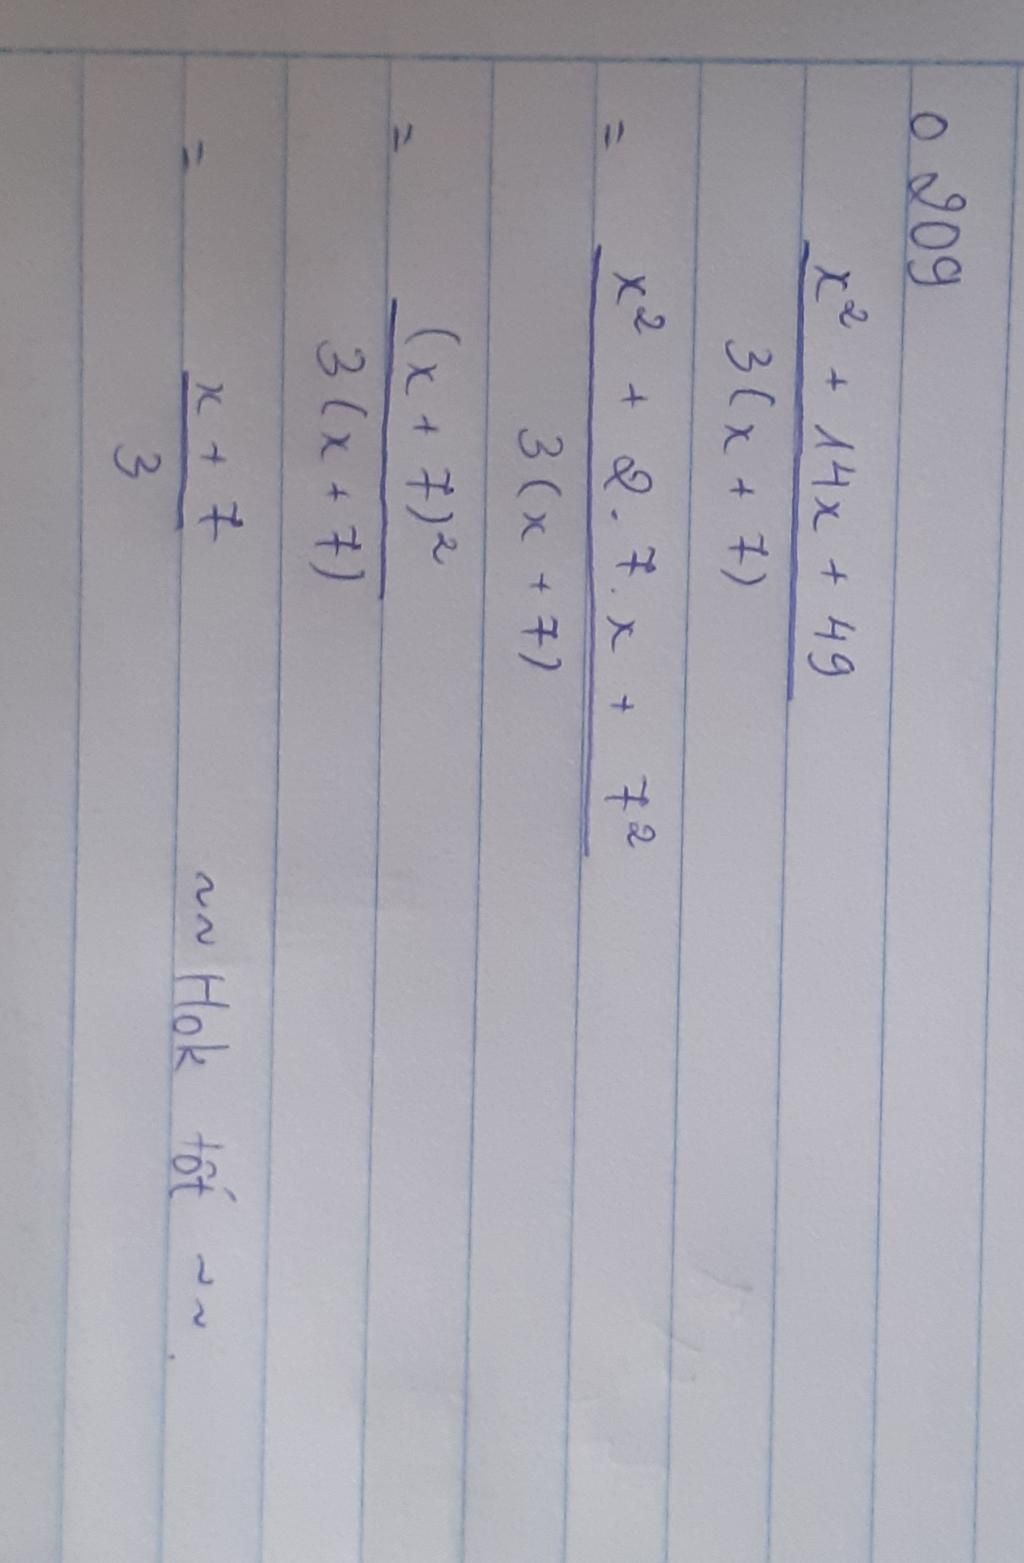 o 209
x² + 14x + 49
3(x + 7)
= x² + 2.7.x + 7²
3(x + 7)
= (x + 7)²
3(x + 7)
= x + 7
3
~~ Hok tốt ~~.